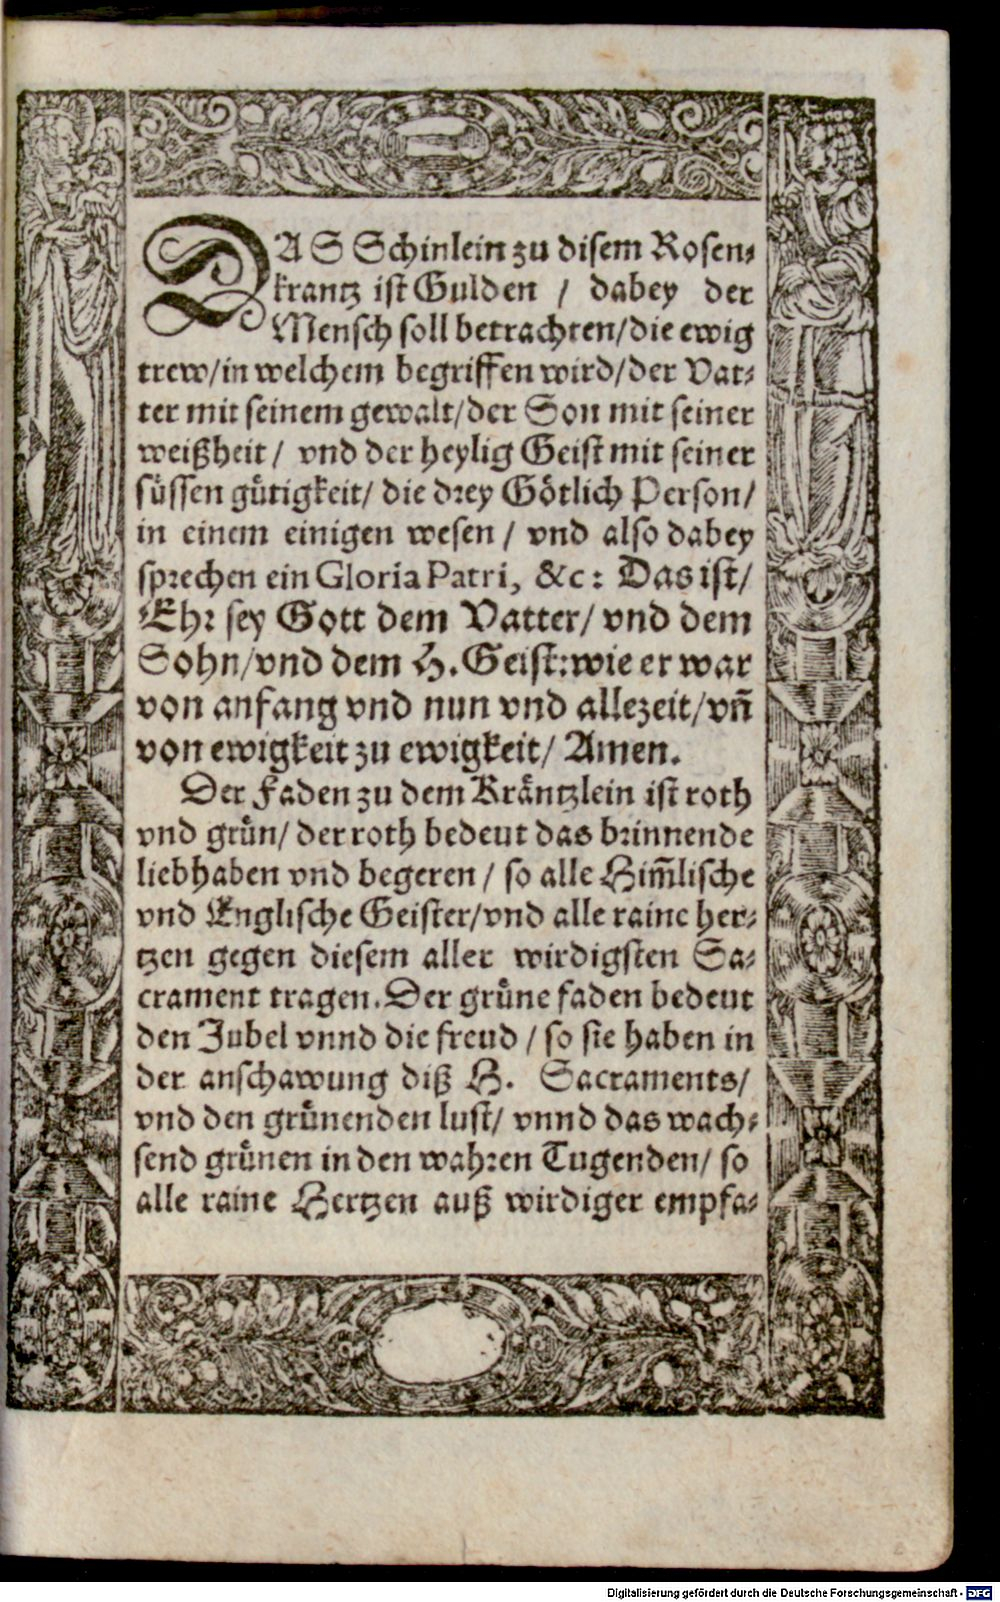 DAS Schinlein zu disem Rosen-
krantz ist Gulden / dabey der
Mensch soll betrachten/die ewig
trew/in welchem begriffen wird/der Vat-
ter mit seinem gewalt/der Son mit seiner
weißheit / vnd der heylig Geist mit seiner
süssen gütigkeit/ die drey Götlich Person/
in einem einigen wesen / vnd also dabey
sprechen ein Gloria Patri, &c: Das ist/
Ehr sey Gott dem Vatter/ vnd dem
Sohn/vnd dem H. Geist:wie er war
von anfang vnd nun vnd allezeit/vñ
von ewigkeit zu ewigkeit/ Amen.
Der Faden zu dem Kräntzlein ist roth
vnd grün/ der roth bedeut das brinnende
liebhaben vnd begeren / so alle Him̃lische
vnd Englische Geister/vnd alle raine her-
tzen gegen diesem aller wirdigsten Sa-
crament tragen. Der grüne faden bedeut
den Jubel vnnd die freud / so sie haben in
der anschawung diß H. Sacraments/
vnd den grünenden lust/ vnnd das wach-
send grünen in den wahren Tugenden/ so
alle raine Hertzen auß wirdiger empfa-
Digitalisierung gefördert durch die Deutsche Forschungsgemeinschaft - DFG